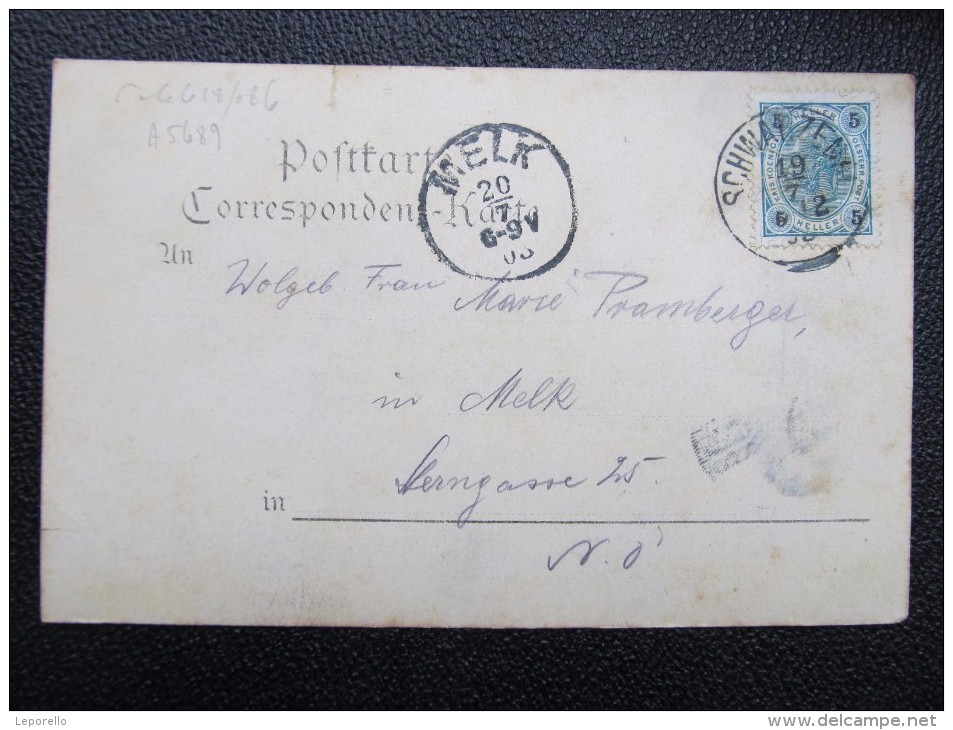 6618/086
A5689
Postkarte
Correspondenz-Karte
An
MELK
20
7
6-9V
03
5 HELLER 5
KAIS. KOENIGL. OESTERR. POST
5 HELLER 5
19
7
2
Wolgeb. Frau Marie Pramberger,
in Melk
Sterngasse 25.
in
N. Ö
Leporello
www.delcampe.net